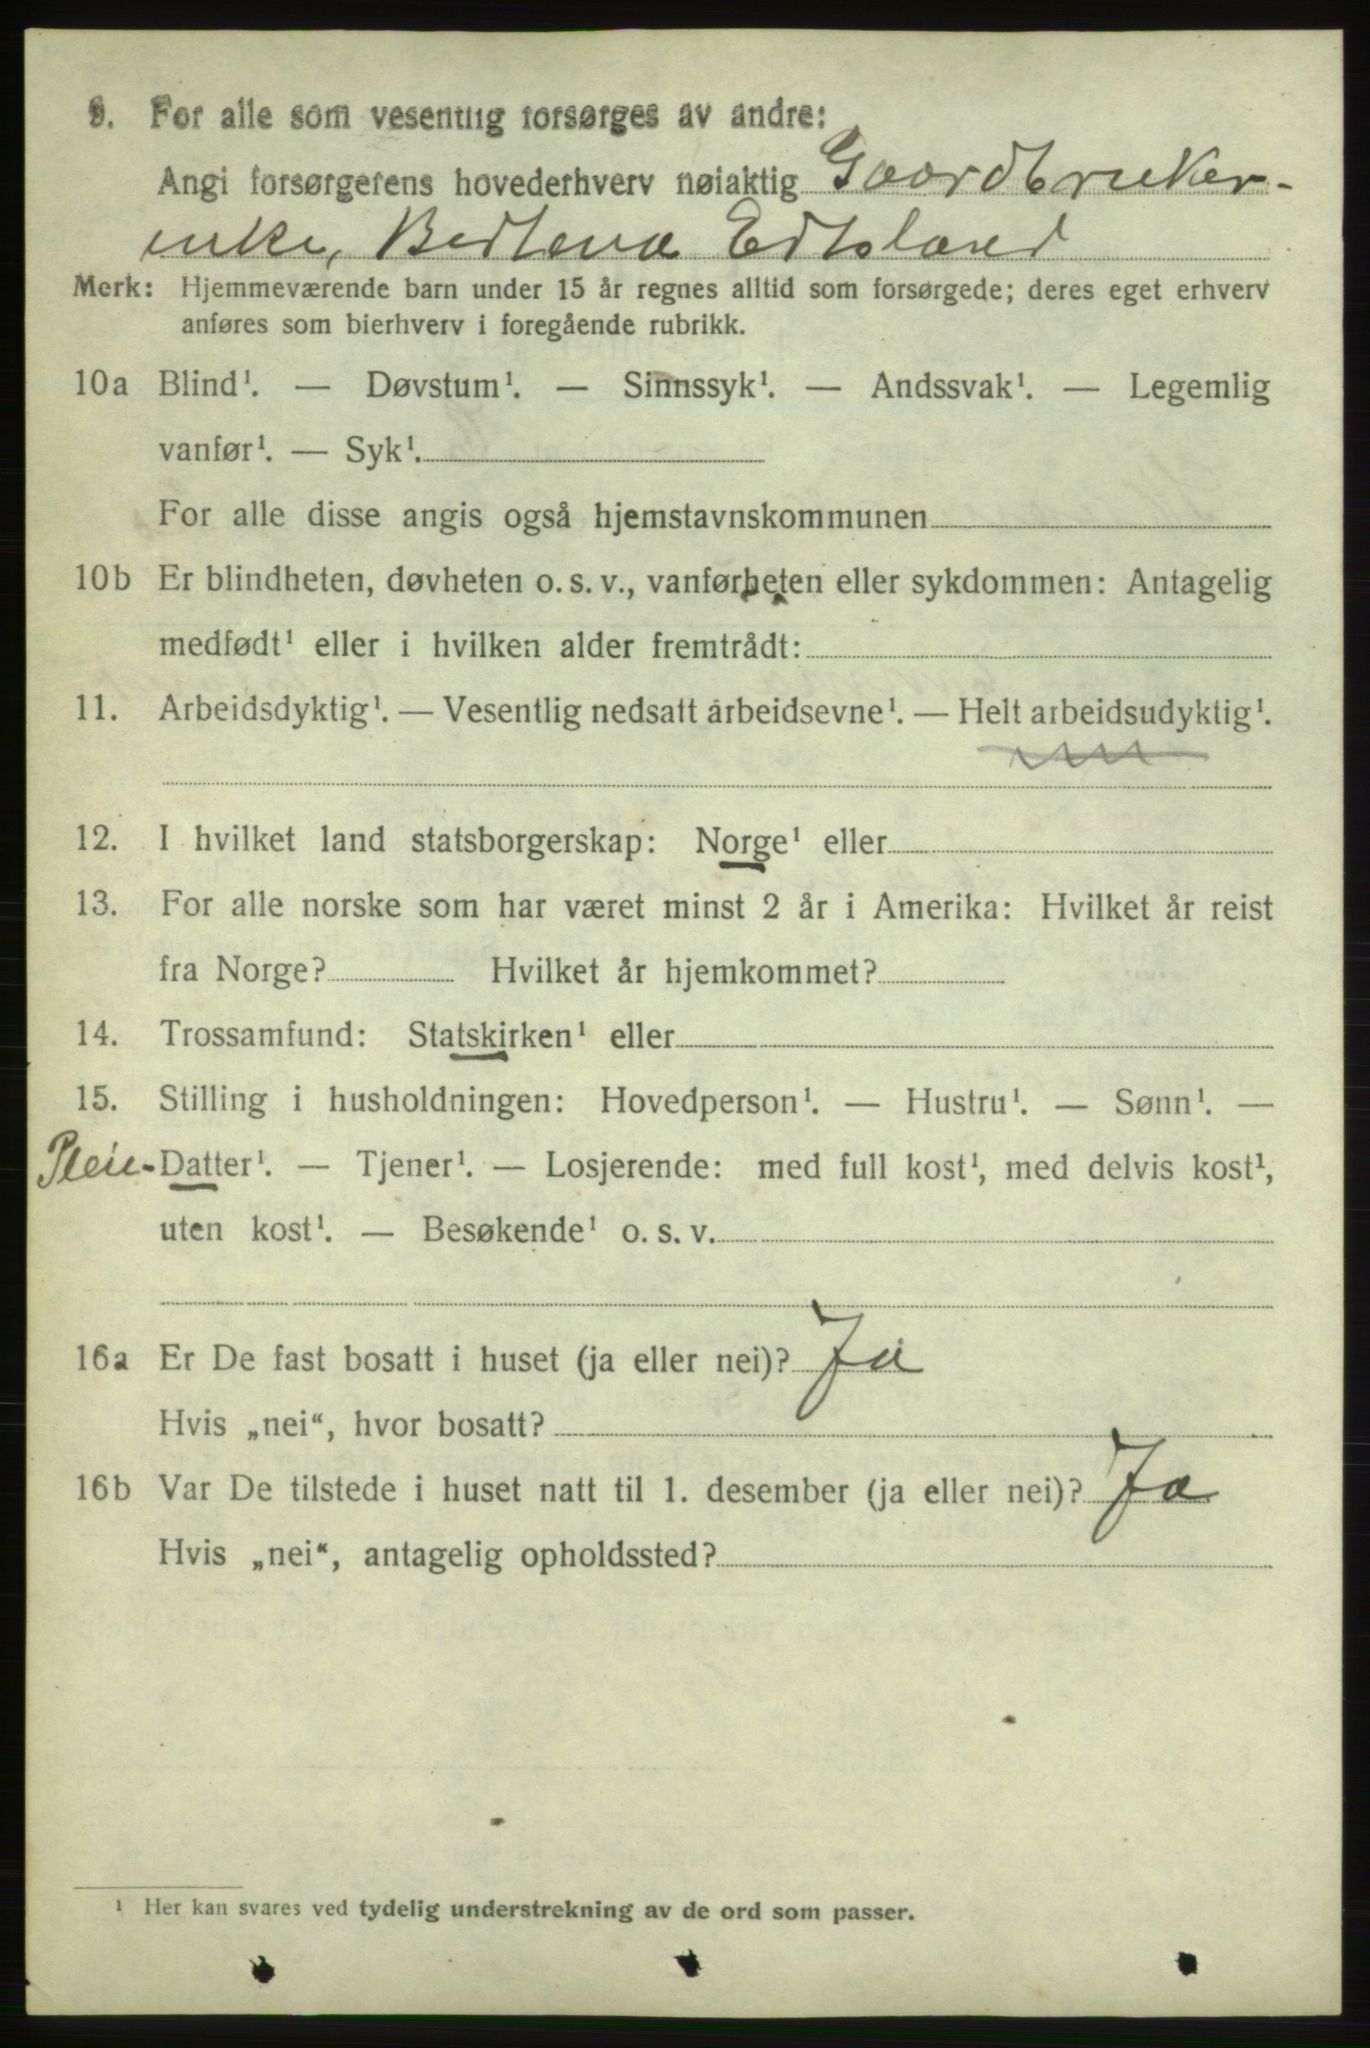 9. For alle som vesentlig forsørges av andre:
Angi forsørgerens hovederhverv nøiaktig Gaardbruker-
enke, Bertena Edland
Merk: Hjemmeværende barn under 15 år regnes alltid som forsørgede; deres eget erhverv
anføres som bierhverv i foregående rubrikk.
10a Blind¹. — Døvstum¹. — Sinnssyk¹. — Andssvak¹. — Legemlig
vanfør¹. — Syk¹.
For alle disse angis også hjemstavnskommunen
10b Er blindheten, døvheten o. s. v., vanførheten eller sykdommen: Antagelig
medfødt¹ eller i hvilken alder fremtrådt:
11. Arbeidsdyktig¹. — Vesentlig nedsatt arbeidsevne¹. — Helt arbeidsudyktig¹.
12. I hvilket land statsborgerskap: Norge¹ eller
13. For alle norske som har været minst 2 år i Amerika: Hvilket år reist
fra Norge? Hvilket år hjemkommet?
14. Trossamfund: Statskirken¹ eller
15. Stilling i husholdningen: Hovedperson¹. — Hustru¹. — Sønn¹. —
Pleie-Datter¹. — Tjener¹. — Losjerende: med full kost¹, med delvis kost¹,
uten kost¹. — Besøkende¹ o. s. v.
16a Er De fast bosatt i huset (ja eller nei)? Ja
Hvis „nei“, hvor bosatt?
16b Var De tilstede i huset natt til 1. desember (ja eller nei)? Ja
Hvis „nei“, antagelig opholdssted?
¹ Her kan svares ved tydelig understrekning av de ord som passer.